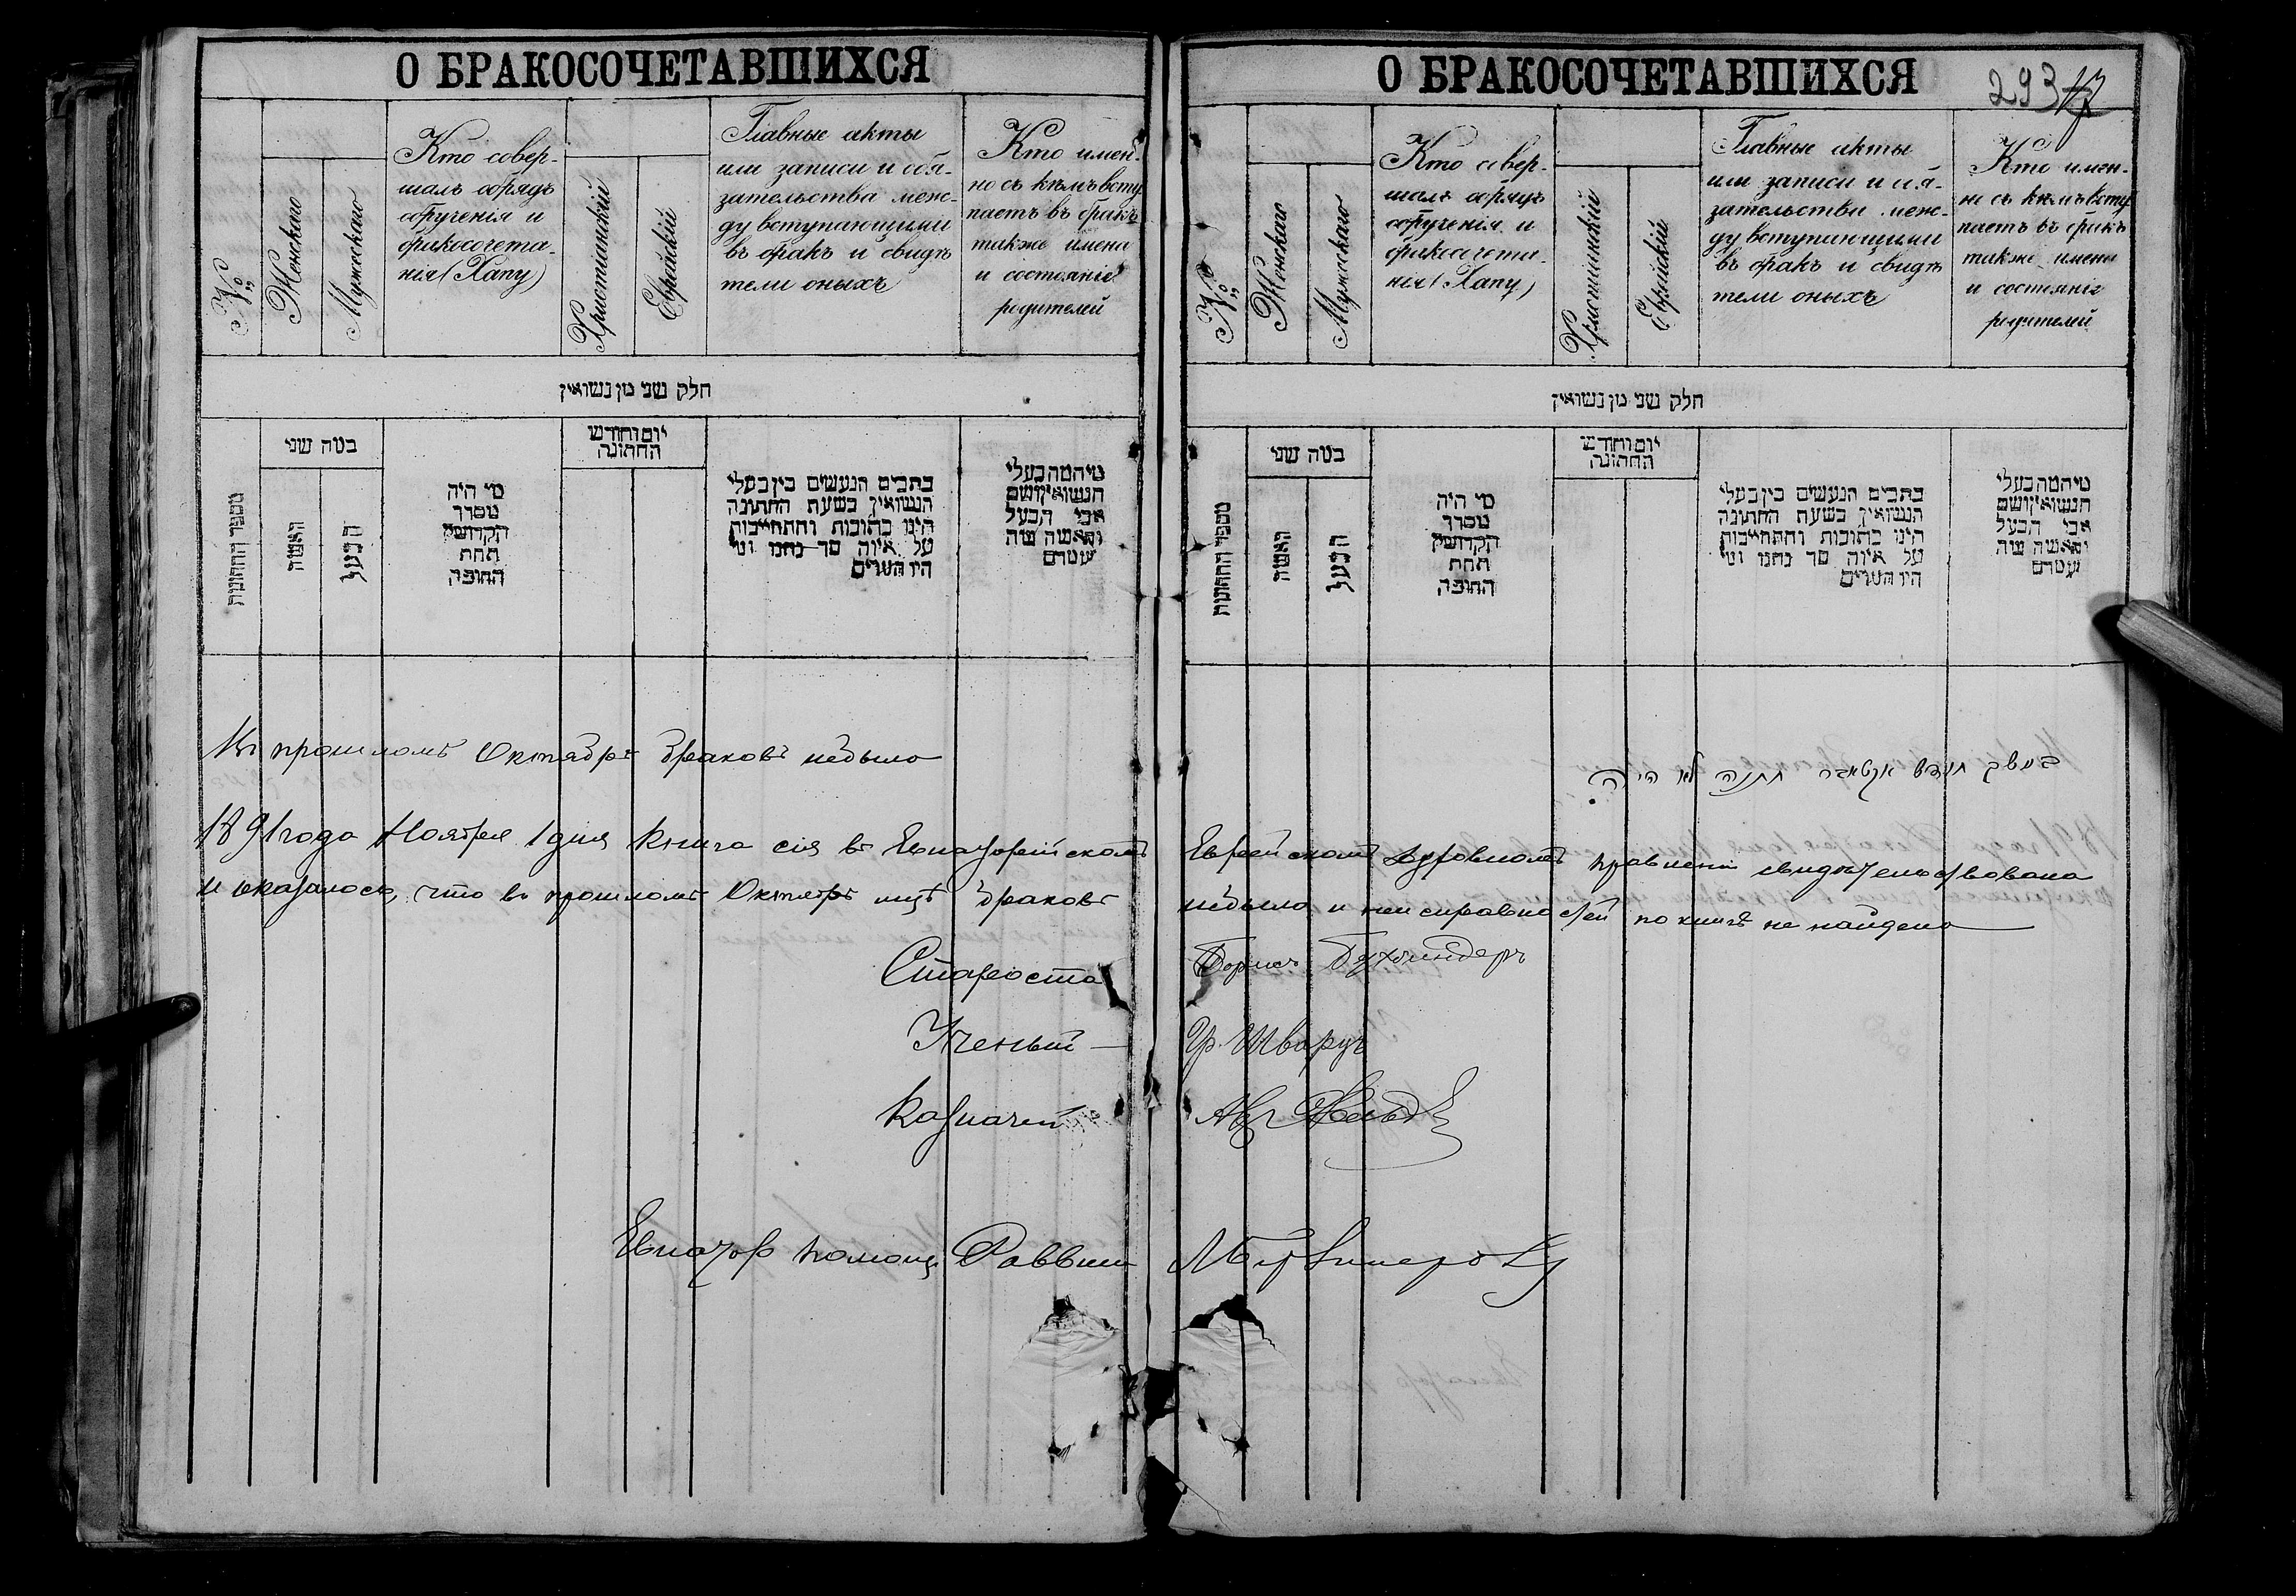 О БРАКОСОЧЕТАВШИХСЯ
№
Женскаго
Мужескаго
Кто совер-
шалъ обрядъ
обрученія и
бракосочета-
нія (Хапу)
Христіанскій
Еврейскій
Главные акты
или записи и обя-
зательства меж-
ду вступающими
въ бракъ и свидѣ
тели оныхъ
Кто имен-
но съ кѣмъ всту
паетъ въ бракъ
также имена
и состояніе
родителей
חלק שני מן נשואין
מספר החתונות
כמה שני
האשה
הבעל
מי היה
מסדר
הקדושין
תחת
החופה
יום וחודש
החתונה
כתבים הנעשים בין בעלי
הנשואין בשעת החתונה
היינו כתובות והתחייבות
על איזה סך נתנו ומי
היו העדים
מיהמה בעלי
הנשואין ושם
אבי הבעל
והאשה ומה
מעמדם
Въ прошломъ Октябрѣ браковъ небыло
О БРАКОСОЧЕТАВШИХСЯ
293
№
Женскаго
Мужескаго
Кто совер-
шалъ обрядъ
обрученія и
бракосочета-
нія (Хапу)
Христіанскій
Еврейскій
Главные акты
или записи и обя-
зательства меж-
ду вступающими
въ бракъ и свидѣ
тели оныхъ
Кто имен-
но съ кѣмъ всту
паетъ въ бракъ
также имена
и состояніе
родителей
חלק שני מן נשואין
מספר החתונות
כמה שני
האשה
הבעל
מי היה
מסדר
הקדושין
תחת
החופה
יום וחודש
החתונה
כתבים הנעשים בין בעלי
הנשואין בשעת החתונה
היינו כתובות והתחייבות
על איזה סך נתנו ומי
היו העדים
מיהמה בעלי
הנשואין ושם
אבי הבעל
והאשה ומה
מעמדם
במשך חודש אקטאבר חתנה לא היה
1891 года Ноября 1 дня книга сія въ Евпаторійскомъ Еврейскомъ Духовномъ Правленіи свидѣтельствована
и оказалось, что въ прошломъ Октябрѣ мцѣ браковъ небыло и неисправностей по книгѣ не найдено
Староста Борисъ
Ученый Гр. Шварцъ
Казначей
Евпатор помощ. Раввин